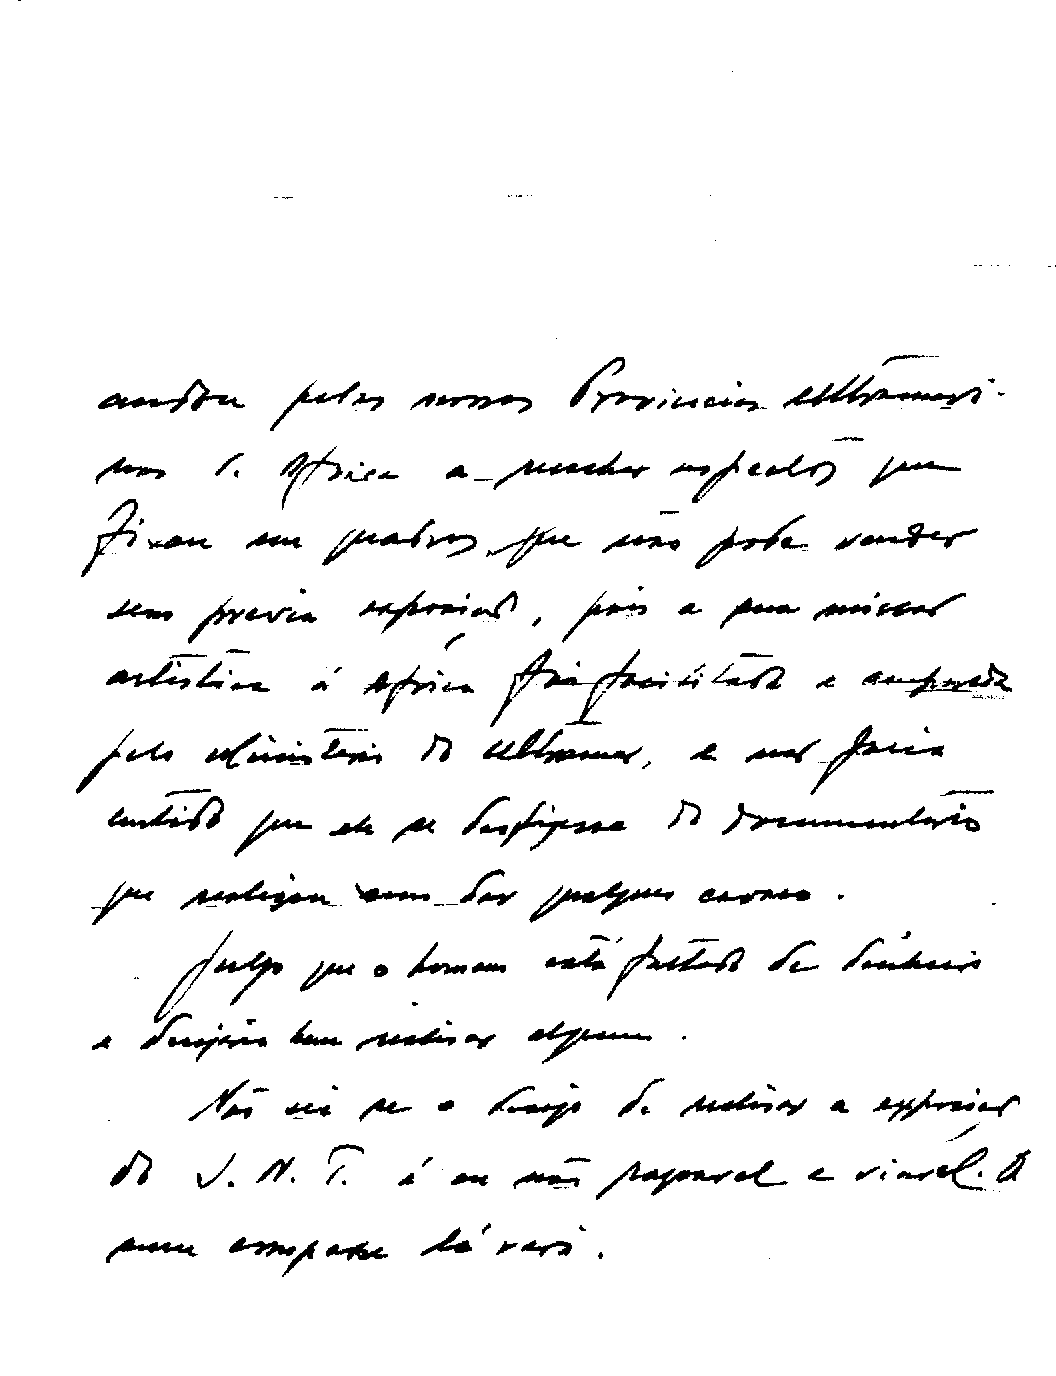 andou pelas nossas Provincias Ultramari-
nas de Africa a recolher aspectos que
fixou em quadros que não pode vender
sem previa exposição, pois a sua missão
artistica á Africa foi facilitada e amparada
pelo Ministerio do Ultramar, e não faria
sentido que ele se desfizesse do documentario
que realizou sem dar qualquer
Julgo que o homem está faltado de dinheiro
e desejaria bem realisar algum.
Não sei se o desejo de realisar a exposição
do S. N. I. é ou não razoavel e viável. O
meu compadre lá verá.